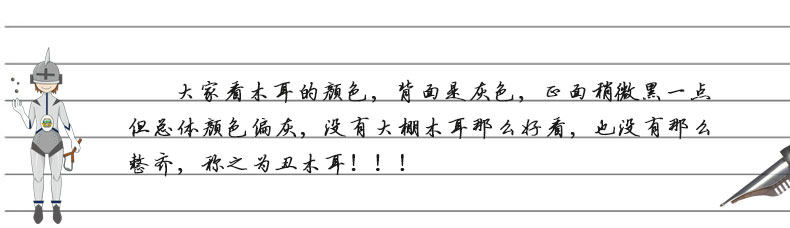 大家看木耳的颜色，背面是灰色，正面稍微黑一点
但总体颜色偏灰，没有大棚木耳那么好看，也没有那么
整齐，称之为丑木耳！！！